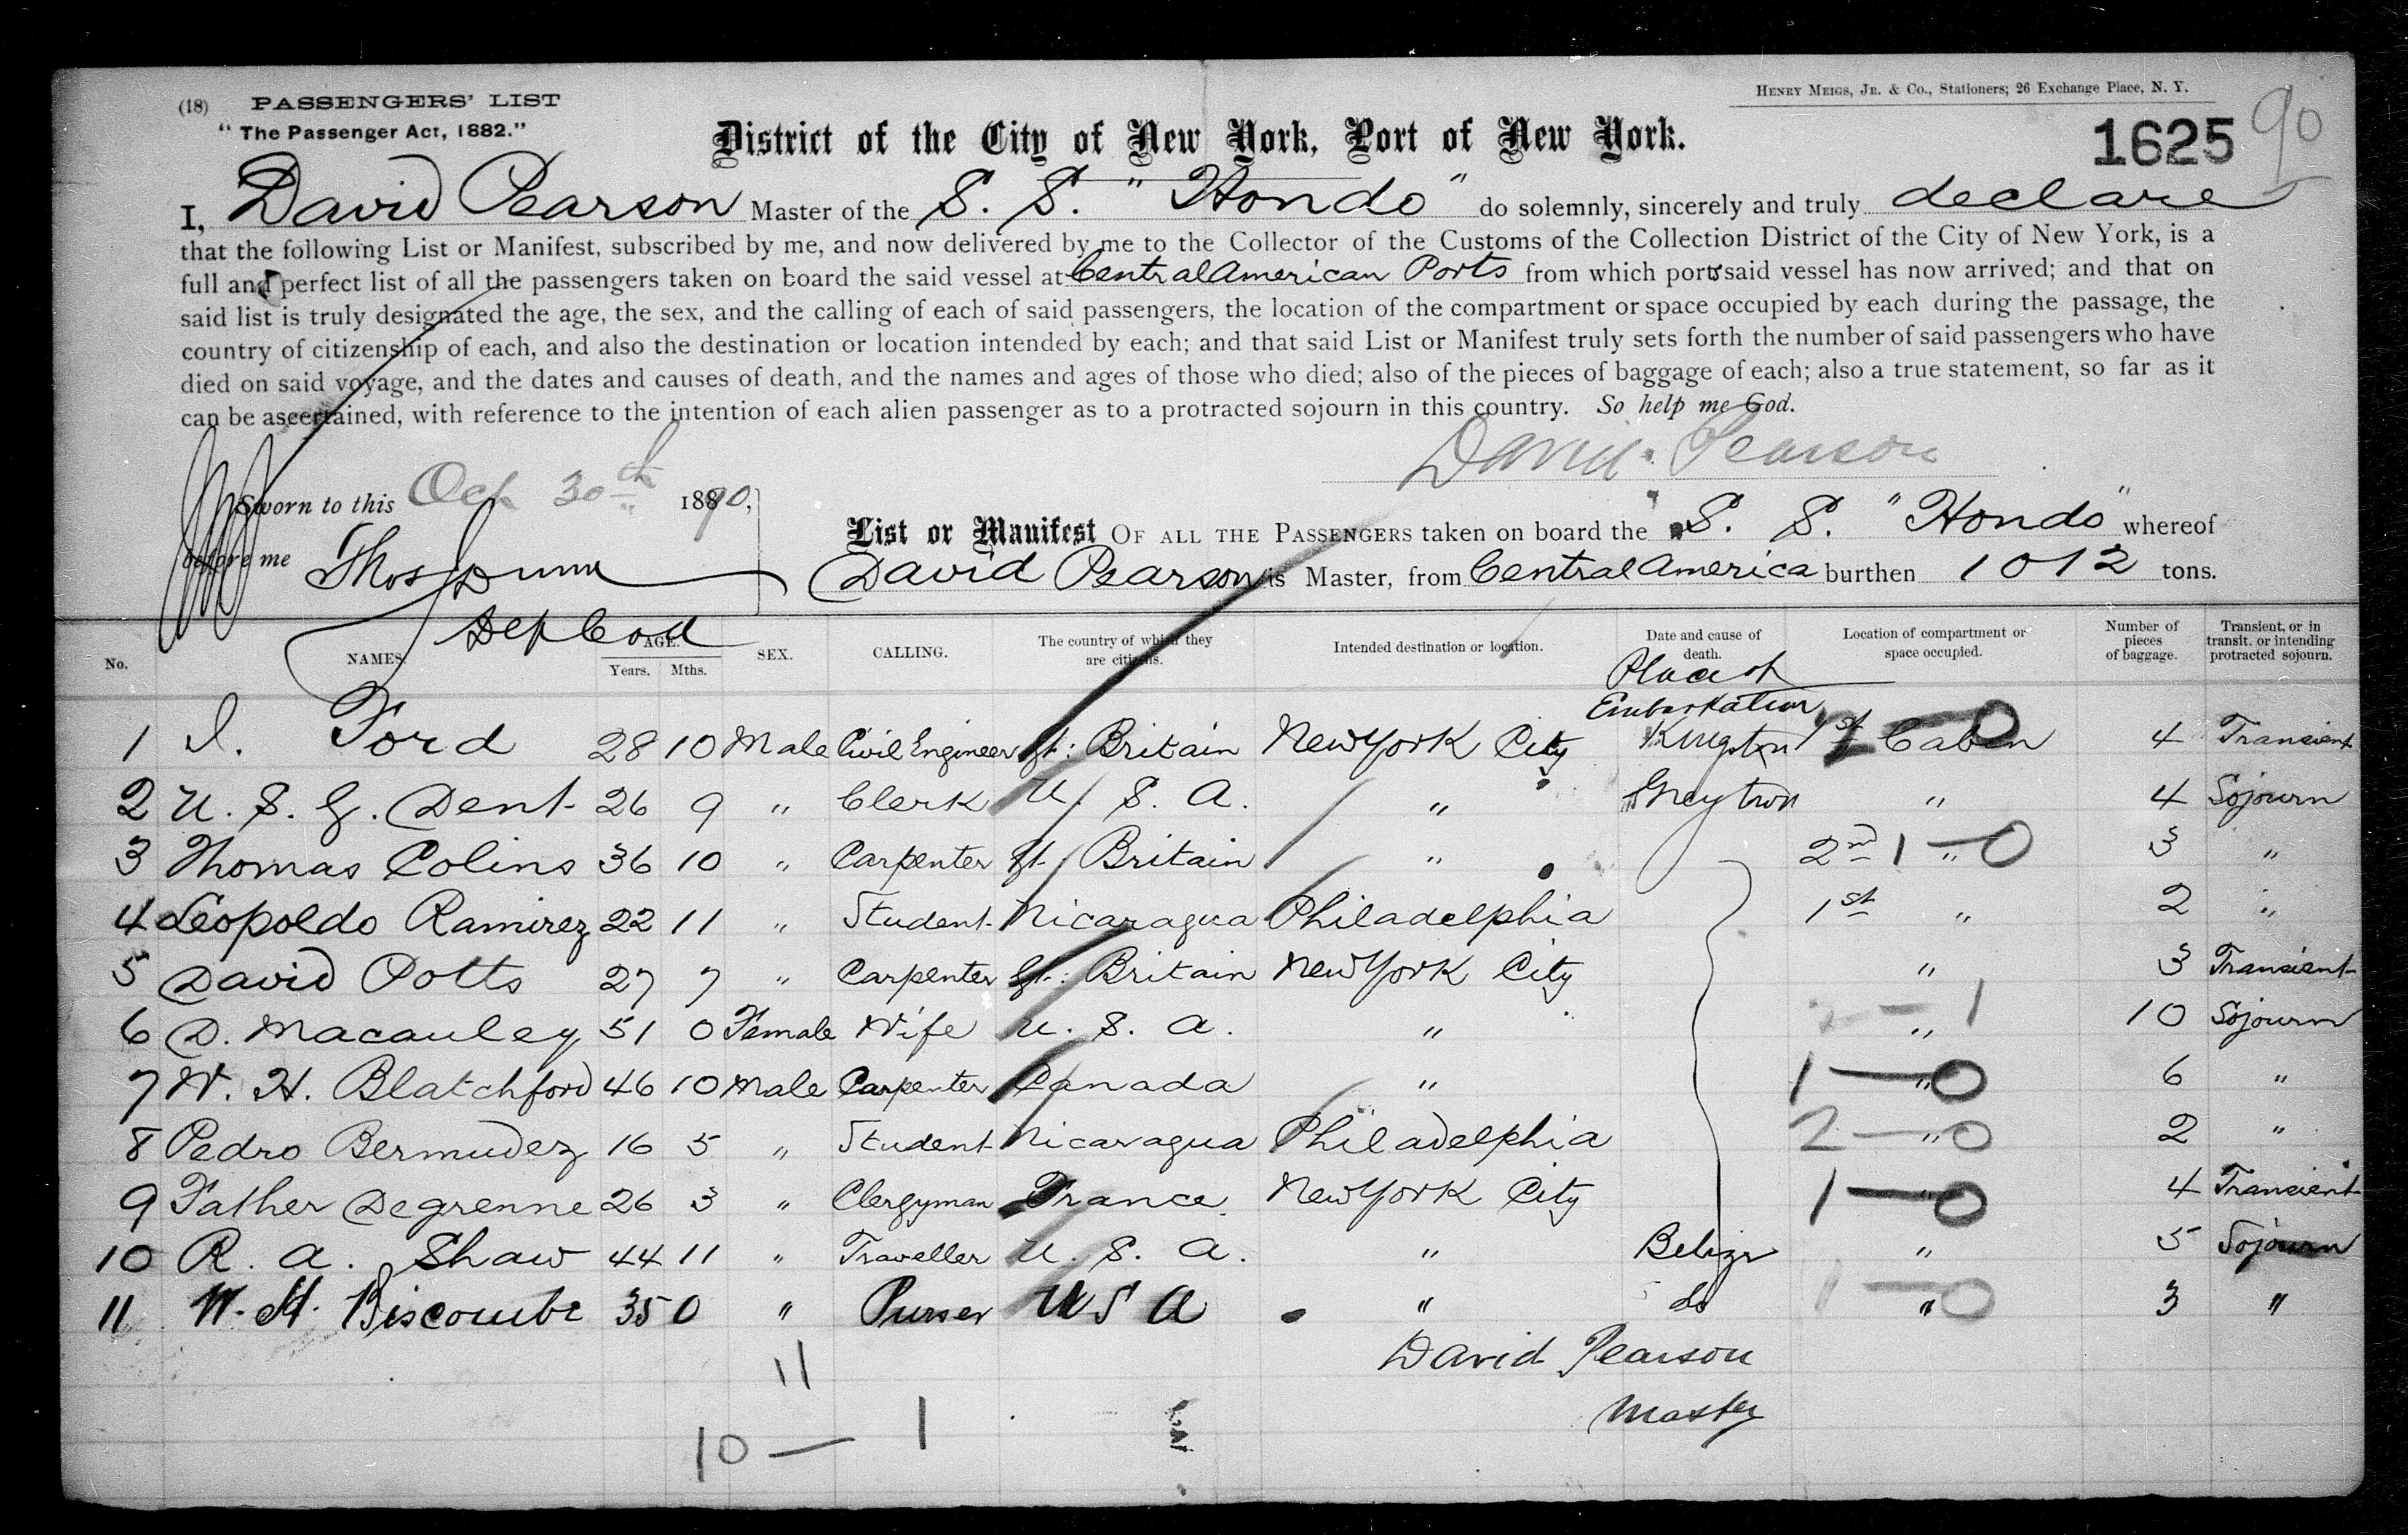 HENRY MEIGS, JR. & CO., Stationers; 26 Exchange Place, N. Y.
(18) PASSENGERS' LIST
"The Passenger Act, 1882."
District of the City of New York, Port of New York.
1625 90
I, David Pearson Master of the S. S. "Hondo" do solemnly, sincerely and truly declare
that the following List or Manifest, subscribed by me, and now delivered by me to the Collector of the Customs of the Collection District of the City of New York, is a
full and perfect list of all the passengers taken on board the said vessel at Central American Ports from which ports said vessel has now arrived; and that on
said list is truly designated the age, the sex, and the calling of each of said passengers, the location of the compartment or space occupied by each during the passage, the
country of citizenship of each, and also the destination or location intended by each; and that said List or Manifest truly sets forth the number of said passengers who have
died on said voyage, and the dates and causes of death, and the names and ages of those who died; also of the pieces of baggage of each; also a true statement, so far as it
can be ascertained, with reference to the intention of each alien passenger as to a protracted sojourn in this country. So help me God.
David Pearson
Sworn to this Oct 30th 1890,
before me Thos Dunn
Dep Coll
List or Manifest OF ALL THE PASSENGERS taken on board the S. S. "Hondo" whereof
David Pearson is Master, from Central America burthen 1012 tons.
No. NAMES. AGE. Years. Mths. SEX. CALLING. The country of which they are citizens. Intended destination or location. Date and cause of death. Location of compartment or space occupied. Number of pieces of baggage. Transient, or in transit. or intending protracted sojourn.
Place of
Embarkation
1 I. Ford 28 10 Male Civil Engineer Gt: Britain New York City Kingston 1st Cabin 2 — 0 4 Transient
2 U. S. G. Dent 26 9 " Clerk U. S. A. " Greytown " 4 Sojourn
3 Thomas Colins 36 10 " Carpenter Gt. Britain " 2nd " 1 — 0 3 "
4 Leopoldo Ramirez 22 11 " Student Nicaragua Philadelphia 1st " 2 "
5 David Potts 27 7 " Carpenter Gt: Britain New York City " 3 Transient
6 D. Macauley 51 0 Female Wife U. S. A. " " 2 — 1 10 Sojourn
7 W. H. Blatchford 46 10 Male Carpenter Canada " " 1 — 0 6 "
8 Pedro Bermudez 16 5 " Student Nicaragua Philadelphia " 2 — 0 2 "
9 Father Degrenne 26 3 " Clergyman France New York City " 1 — 0 4 Transient
10 R. A. Shaw 44 11 " Traveller U. S. A. " Belize " 5 Sojourn
11 W. H. Biscombe 35 0 " Purser U S A " do " 1 — 0 3 "
11
David Pearson
Master
10 — 1